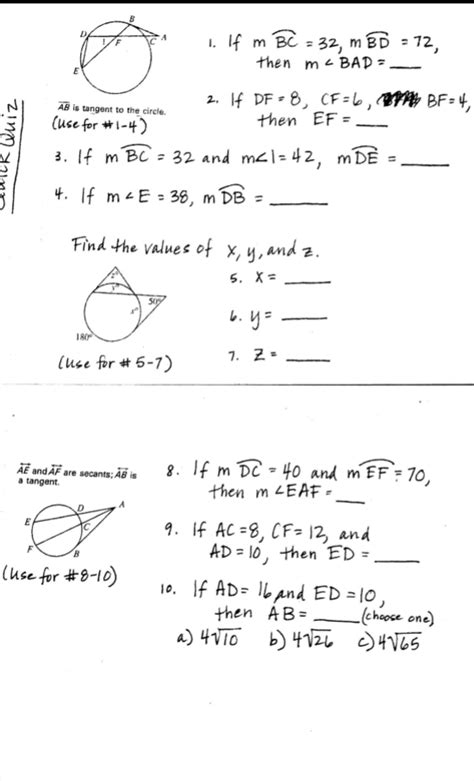 Quick Quiz
B
D
1
F
C
A
E
AB is tangent to the circle.
(Use for #1-4)
1. If m BC = 32, m BD = 72,
then m∠BAD = ____
2. If DF = 8, CF = 6, BF = 4,
then EF = ____
3. If m BC = 32 and m∠1 = 42, m DE = ____
4. If m∠E = 38, m DB = ____
Find the values of x, y, and z.
5. x = ____
6. y = ____
7. z = ____
z°
y°
x°
50°
180°
(Use for #5-7)
AE and AF are secants; AB is
a tangent.
D
A
E
C
F
B
(Use for #8-10)
8. If m DC = 40 and m EF = 70,
then m∠EAF = ____
9. If AC = 8, CF = 12, and
AD = 10, then ED = ____
10. If AD = 16 and ED = 10,
then AB = ____ (choose one)
a) 4√10 b) 4√26 c) 4√65